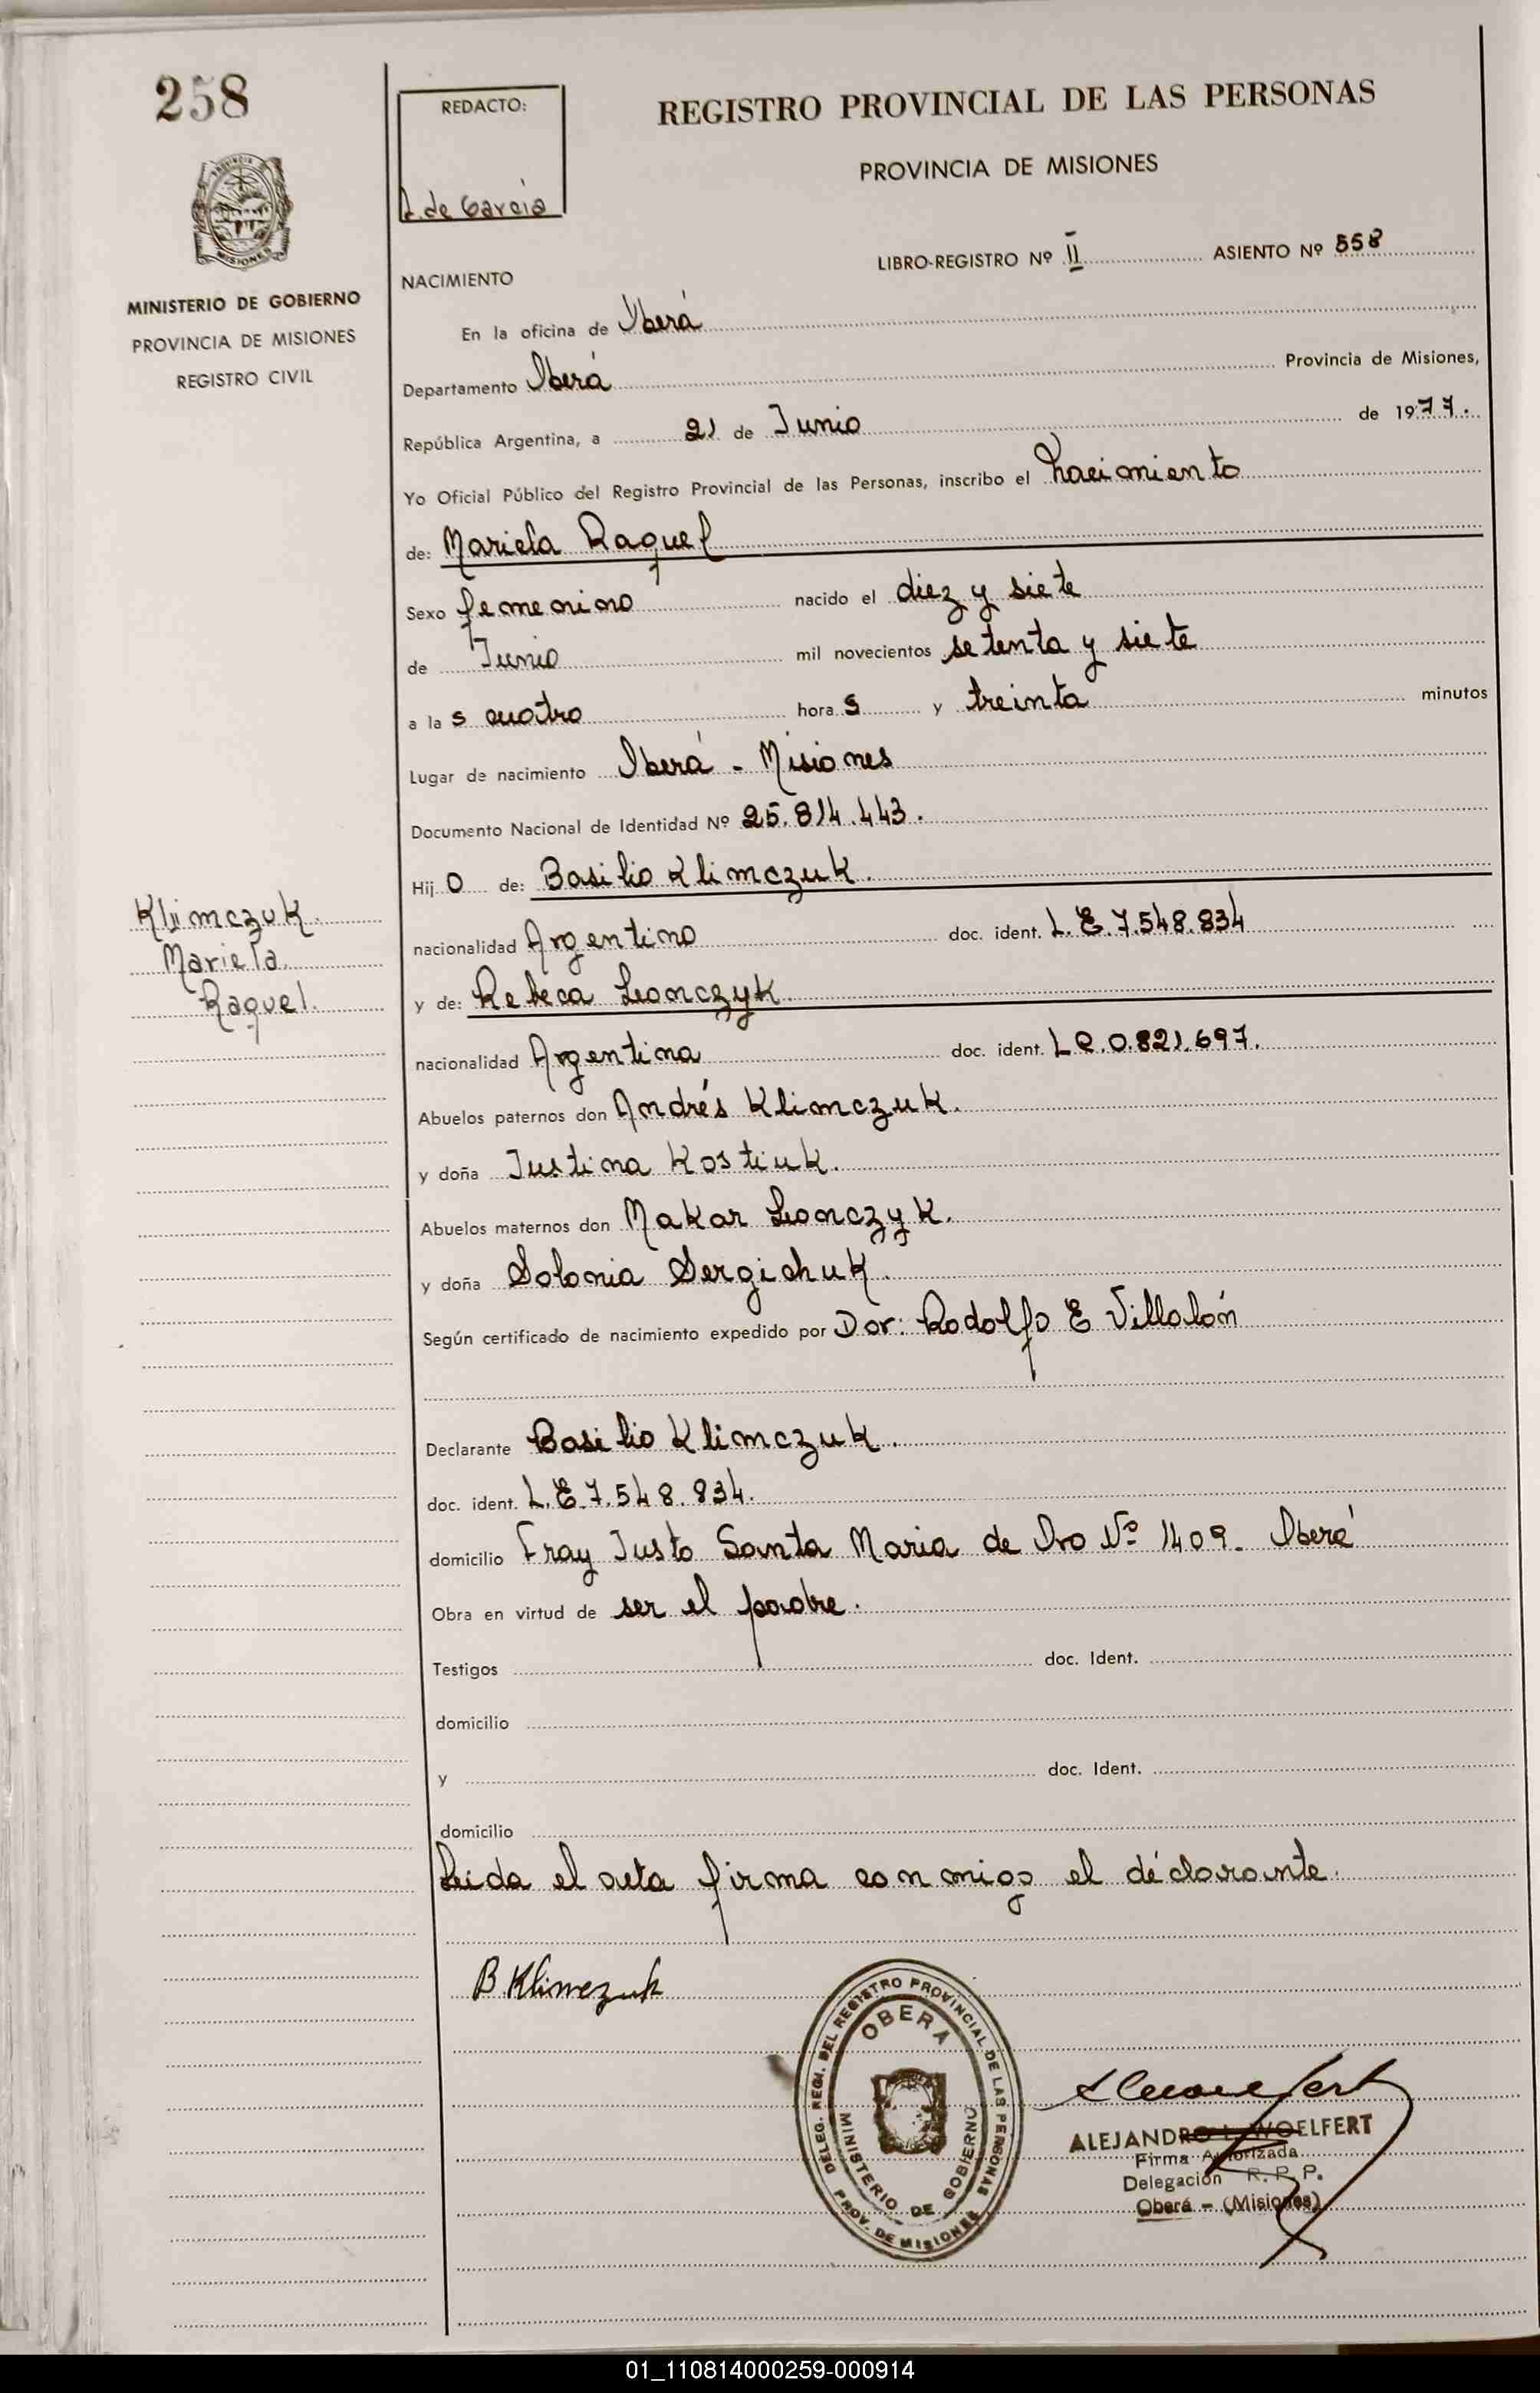 258
REDACTO:
A. de García
REGISTRO PROVINCIAL DE LAS PERSONAS
PROVINCIA DE MISIONES
PROVINCIA
MISIONES
MINISTERIO DE GOBIERNO
PROVINCIA DE MISIONES
REGISTRO CIVIL
LIBRO-REGISTRO Nº II ASIENTO Nº 558
NACIMIENTO
En la oficina de Oberá
Departamento Oberá Provincia de Misiones,
República Argentina, a 21 de Junio de 1977.
Yo Oficial Público del Registro Provincial de las Personas, inscribo el nacimiento
de: Mariela Raquel
Sexo femenino nacido el diez y siete
de Junio mil novecientos setenta y siete
a la s cuatro hora s y treinta minutos
Lugar de nacimiento Oberá - Misiones
Documento Nacional de Identidad Nº 25.814.443.
Hij o de: Basilio Klimczuk.
Klimczuk.
Mariela.
Raquel.
nacionalidad Argentino doc. ident. L.E.7.548.834
y de: Rebeca Leonczyk.
nacionalidad Argentina doc. ident. L.C.0.821.697.
Abuelos paternos don Andrés Klimczuk.
y doña Justina Kostiuk.
Abuelos maternos don Makar Leonczyk.
y doña Solonia Sergichuk.
Según certificado de nacimiento expedido por Dor: Rodolfo E Villalón
Declarante Basilio Klimczuk.
doc. ident. L.E.7.548.834.
domicilio Fray Justo Santa Maria de Oro Nº 1409. Oberá
Obra en virtud de ser el padre.
Testigos doc. Ident.
domicilio
y doc. Ident.
domicilio
Leida el acta firma conmigo el declarante.
B Klimczuk
DELEG. REGI. DEL REGISTRO PROVINCIAL DE LAS PERSONAS
OBERA
MINISTERIO DE GOBIERNO
PROV. DE MISIONES
ALEJANDRO L. WOELFERT
Firma Autorizada
Delegación R. P. P.
Oberá - (Misiones)
01_110814000259-000914